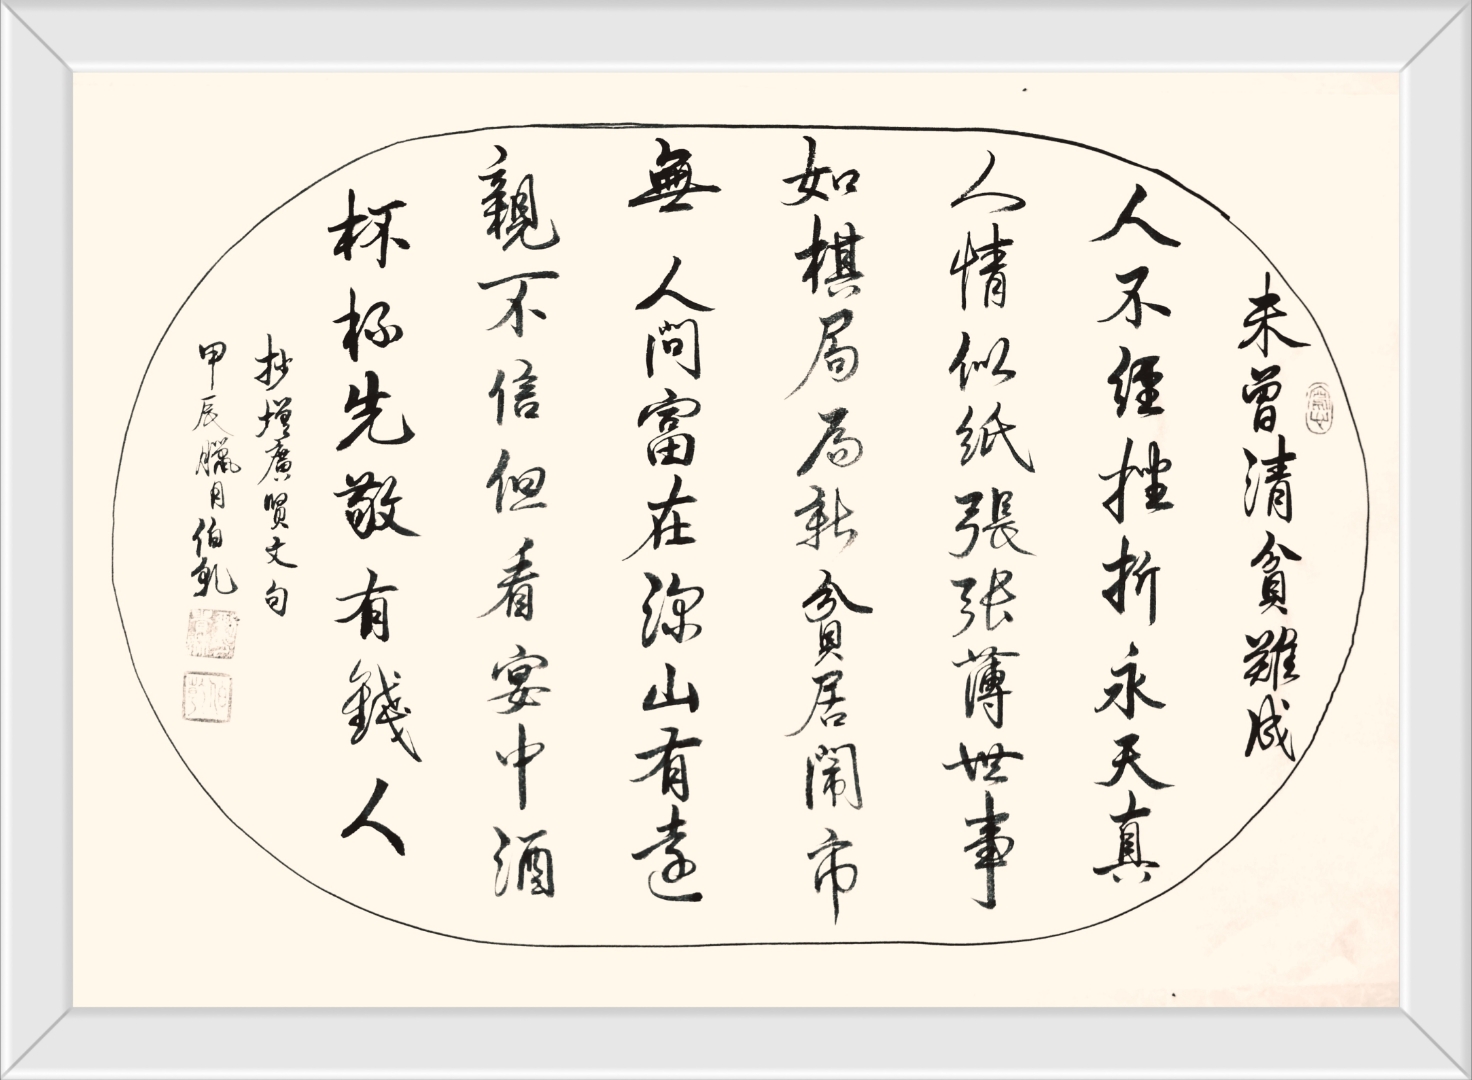 未曾清貧難成
人不經挫折永天真
人情似紙張张薄世事
如棋局局新貧居鬧市
無人問富在深山有遠
親不信但看宴中酒
杯杯先敬有錢人
抄增廣賢文句
甲辰臘月伯乾